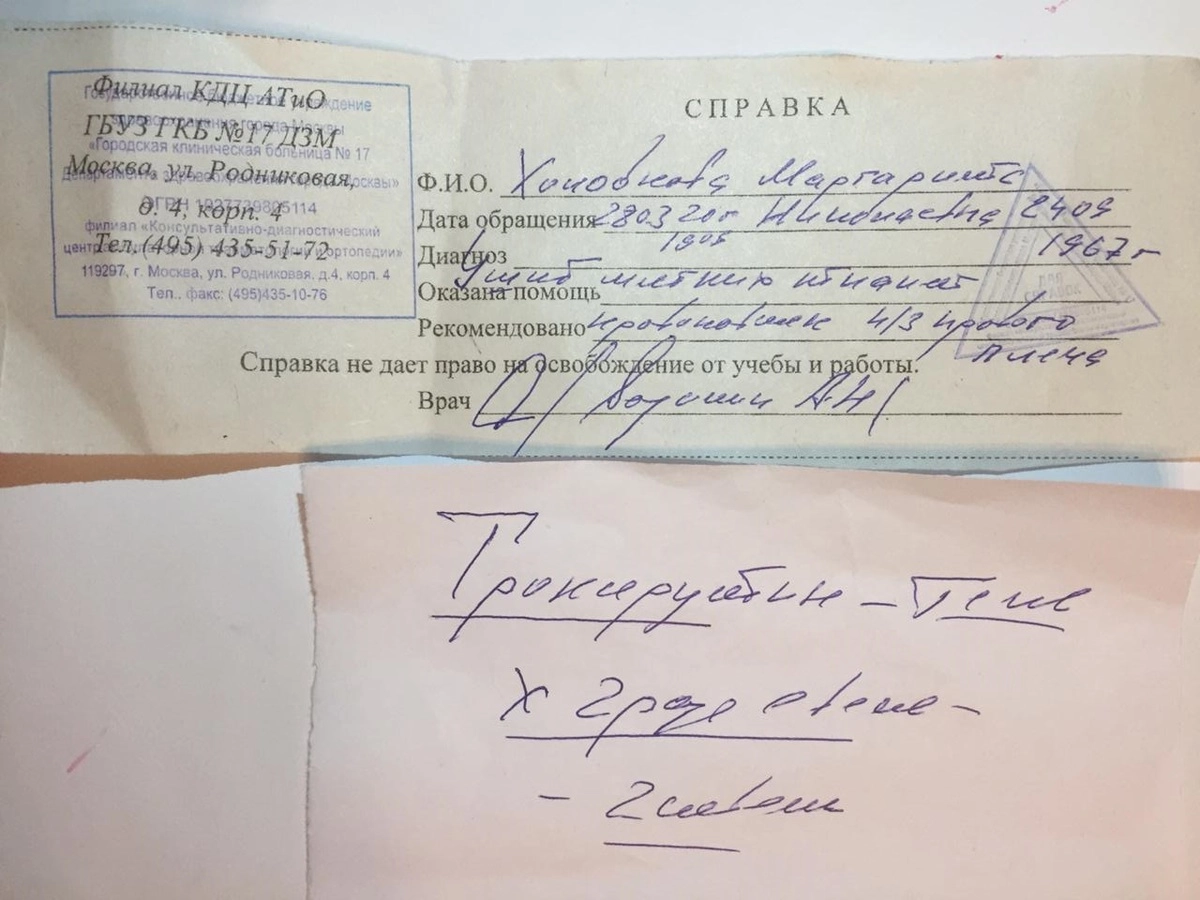 Филиал КДЦ АТиО
ГБУЗ ГКБ №17 ДЗМ
Москва, ул. Родниковая,
д. 4, корп. 4
Тел. (495) 435-51-72
Государственное бюджетное учреждение
здравоохранения города Москвы
«Городская клиническая больница № 17
Департамента здравоохранения города Москвы»
филиал «Консультативно-диагностический
ортопедии»
119297, г. Москва, ул. Родниковая, д.4, корп. 4
Тел., факс: (495)435-10-76
СПРАВКА
Ф.И.О. Маргарита
Дата обращения 280320г Николаевна 2409
1905
Диагноз 1967г
Ушиб мягких тканей
Оказана помощь
Рекомендовано н/3 правого
плеча
Справка не дает право на освобождение от учебы и работы.
Врач А.Н
ДЛЯ
СПРАВОК
Троксерутин – Гель
х 2 раза в день –
– 2 недели